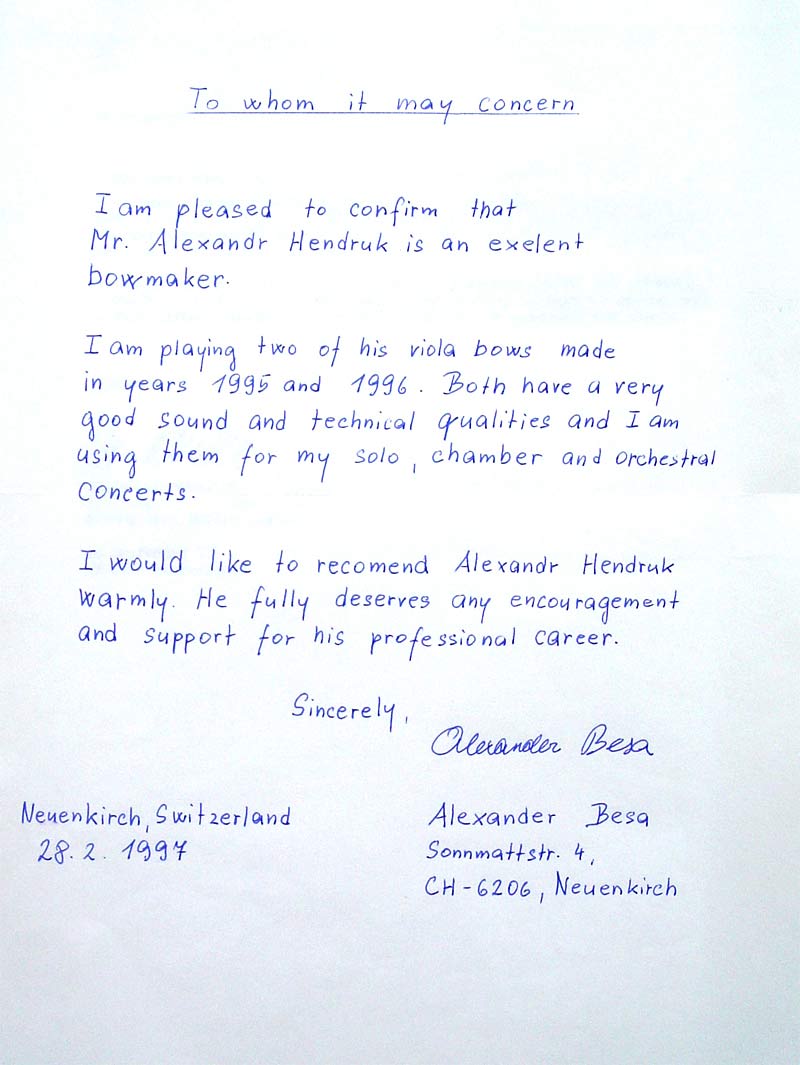 To whom it may concern
I am pleased to confirm that
Mr. Alexandr Hendruk is an exelent
bowmaker.
I am playing two of his viola bows made
in years 1995 and 1996. Both have a very
good sound and technical qualities and I am
using them for my solo, chamber and orchestral
concerts.
I would like to recomend Alexandr Hendruk
warmly. He fully deserves any encouragement
and support for his professional career.
Sincerely,
Alexander Besa
Neuenkirch, Switzerland
28. 2. 1997
Alexander Besa
Sonnmattstr. 4,
CH-6206, Neuenkirch